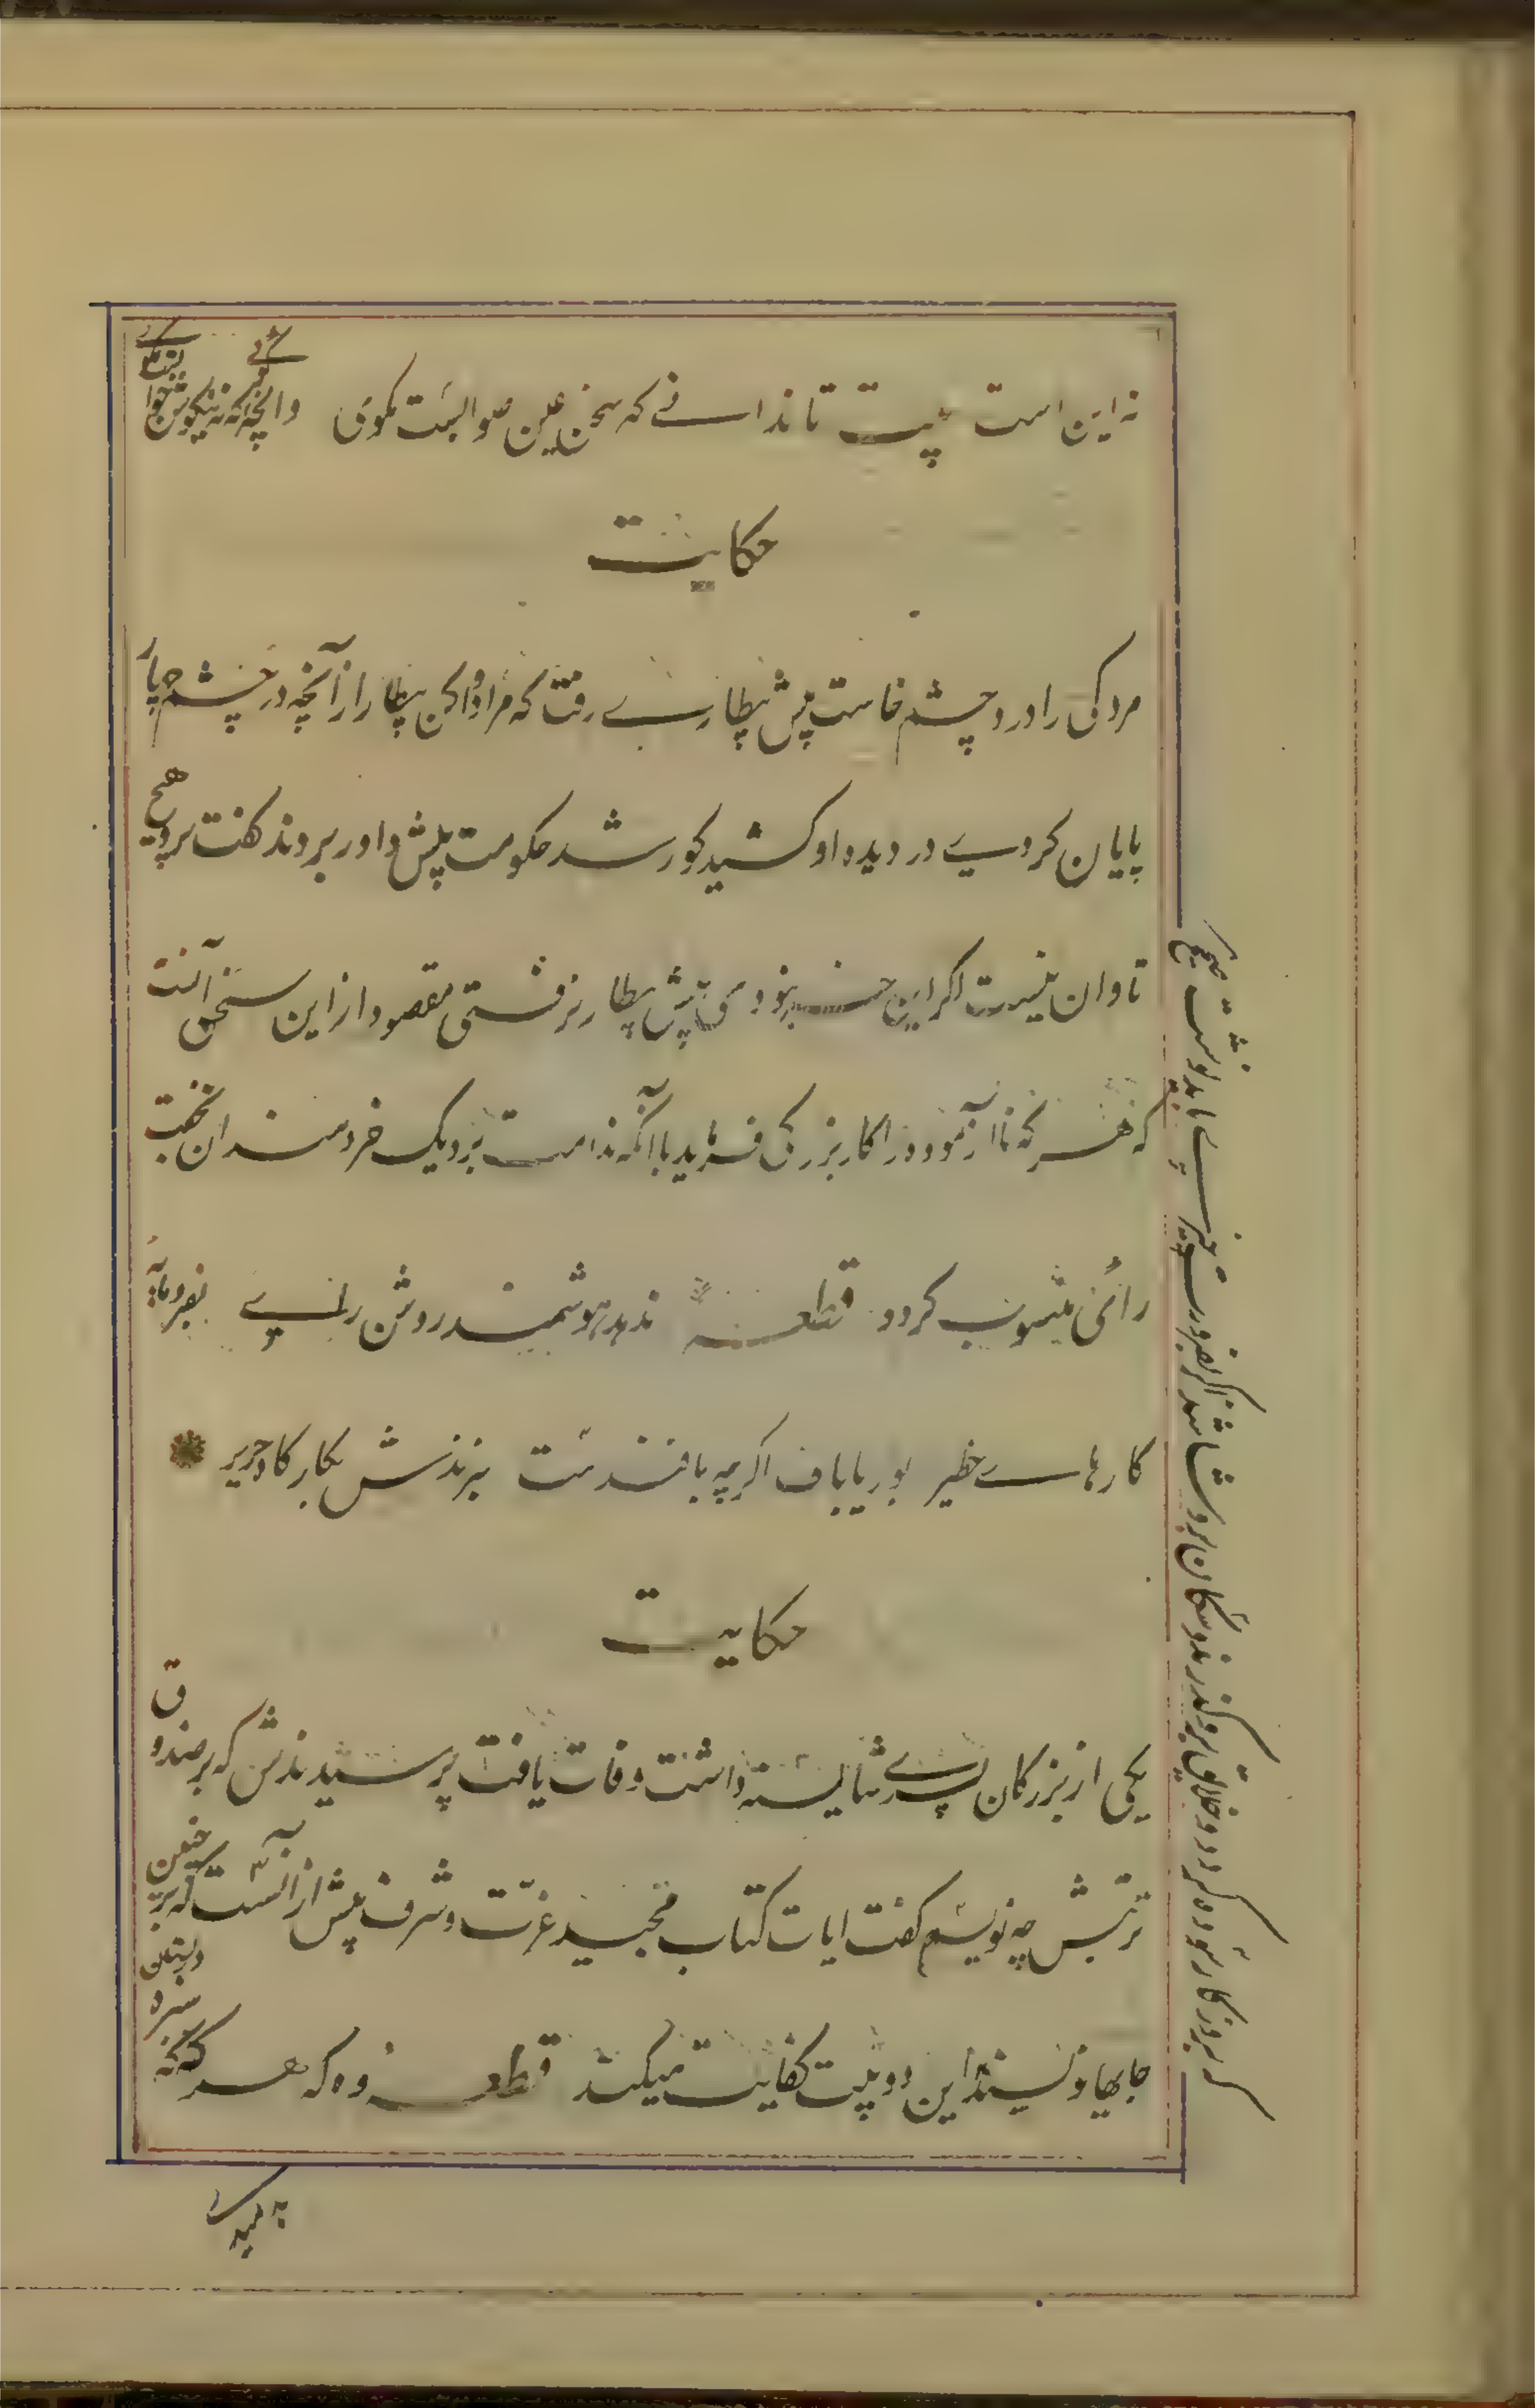 نه این است بیت تا ندانے که سخن عین صوابست مگوی وانچه که نه نیکوش جواب
حکایت
مردکی را درد چشم خاست پیش بیطارے رفت که مرا دوا کن بیطار از آنچه در چشم چار
پایان کردے در دیده او کشید کور شد حکومت پیش داور بردند گفت برو هیچ
تاوان نیست اگر این خر نبودی پیش بیطار نرفتی مقصود از این سخن آنست
که هر که نا آزموده را کار بزرگ فرماید با آنکه ندامت برد نزدیک خردمندان بخفت
رائی منسوب گردد قطعه ندهد هوشمند روشن راے بفرومایه
کارهاے خطیر بوریا باف اگر چه بافندست نبرندش بکارگاه حریر
حکایت
یکی از بزرگان پسرے شایسته داشت وفات یافت پرسیدندش که بر صندوق
تربتش چه نویسیم گفت ایات کتاب مجید عزت و شرف پیش از آنست که بر چنین
جایها نویسند این دو بیت کفایت میکند قطعه وه که هر گه که سبزه در بستان
که بروزگار سوده گردد و خلایق برو گذرند و سگان برو شاشند اگر بضرورت چیزے